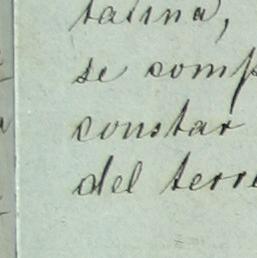 talina,
se comp
constar
del terre